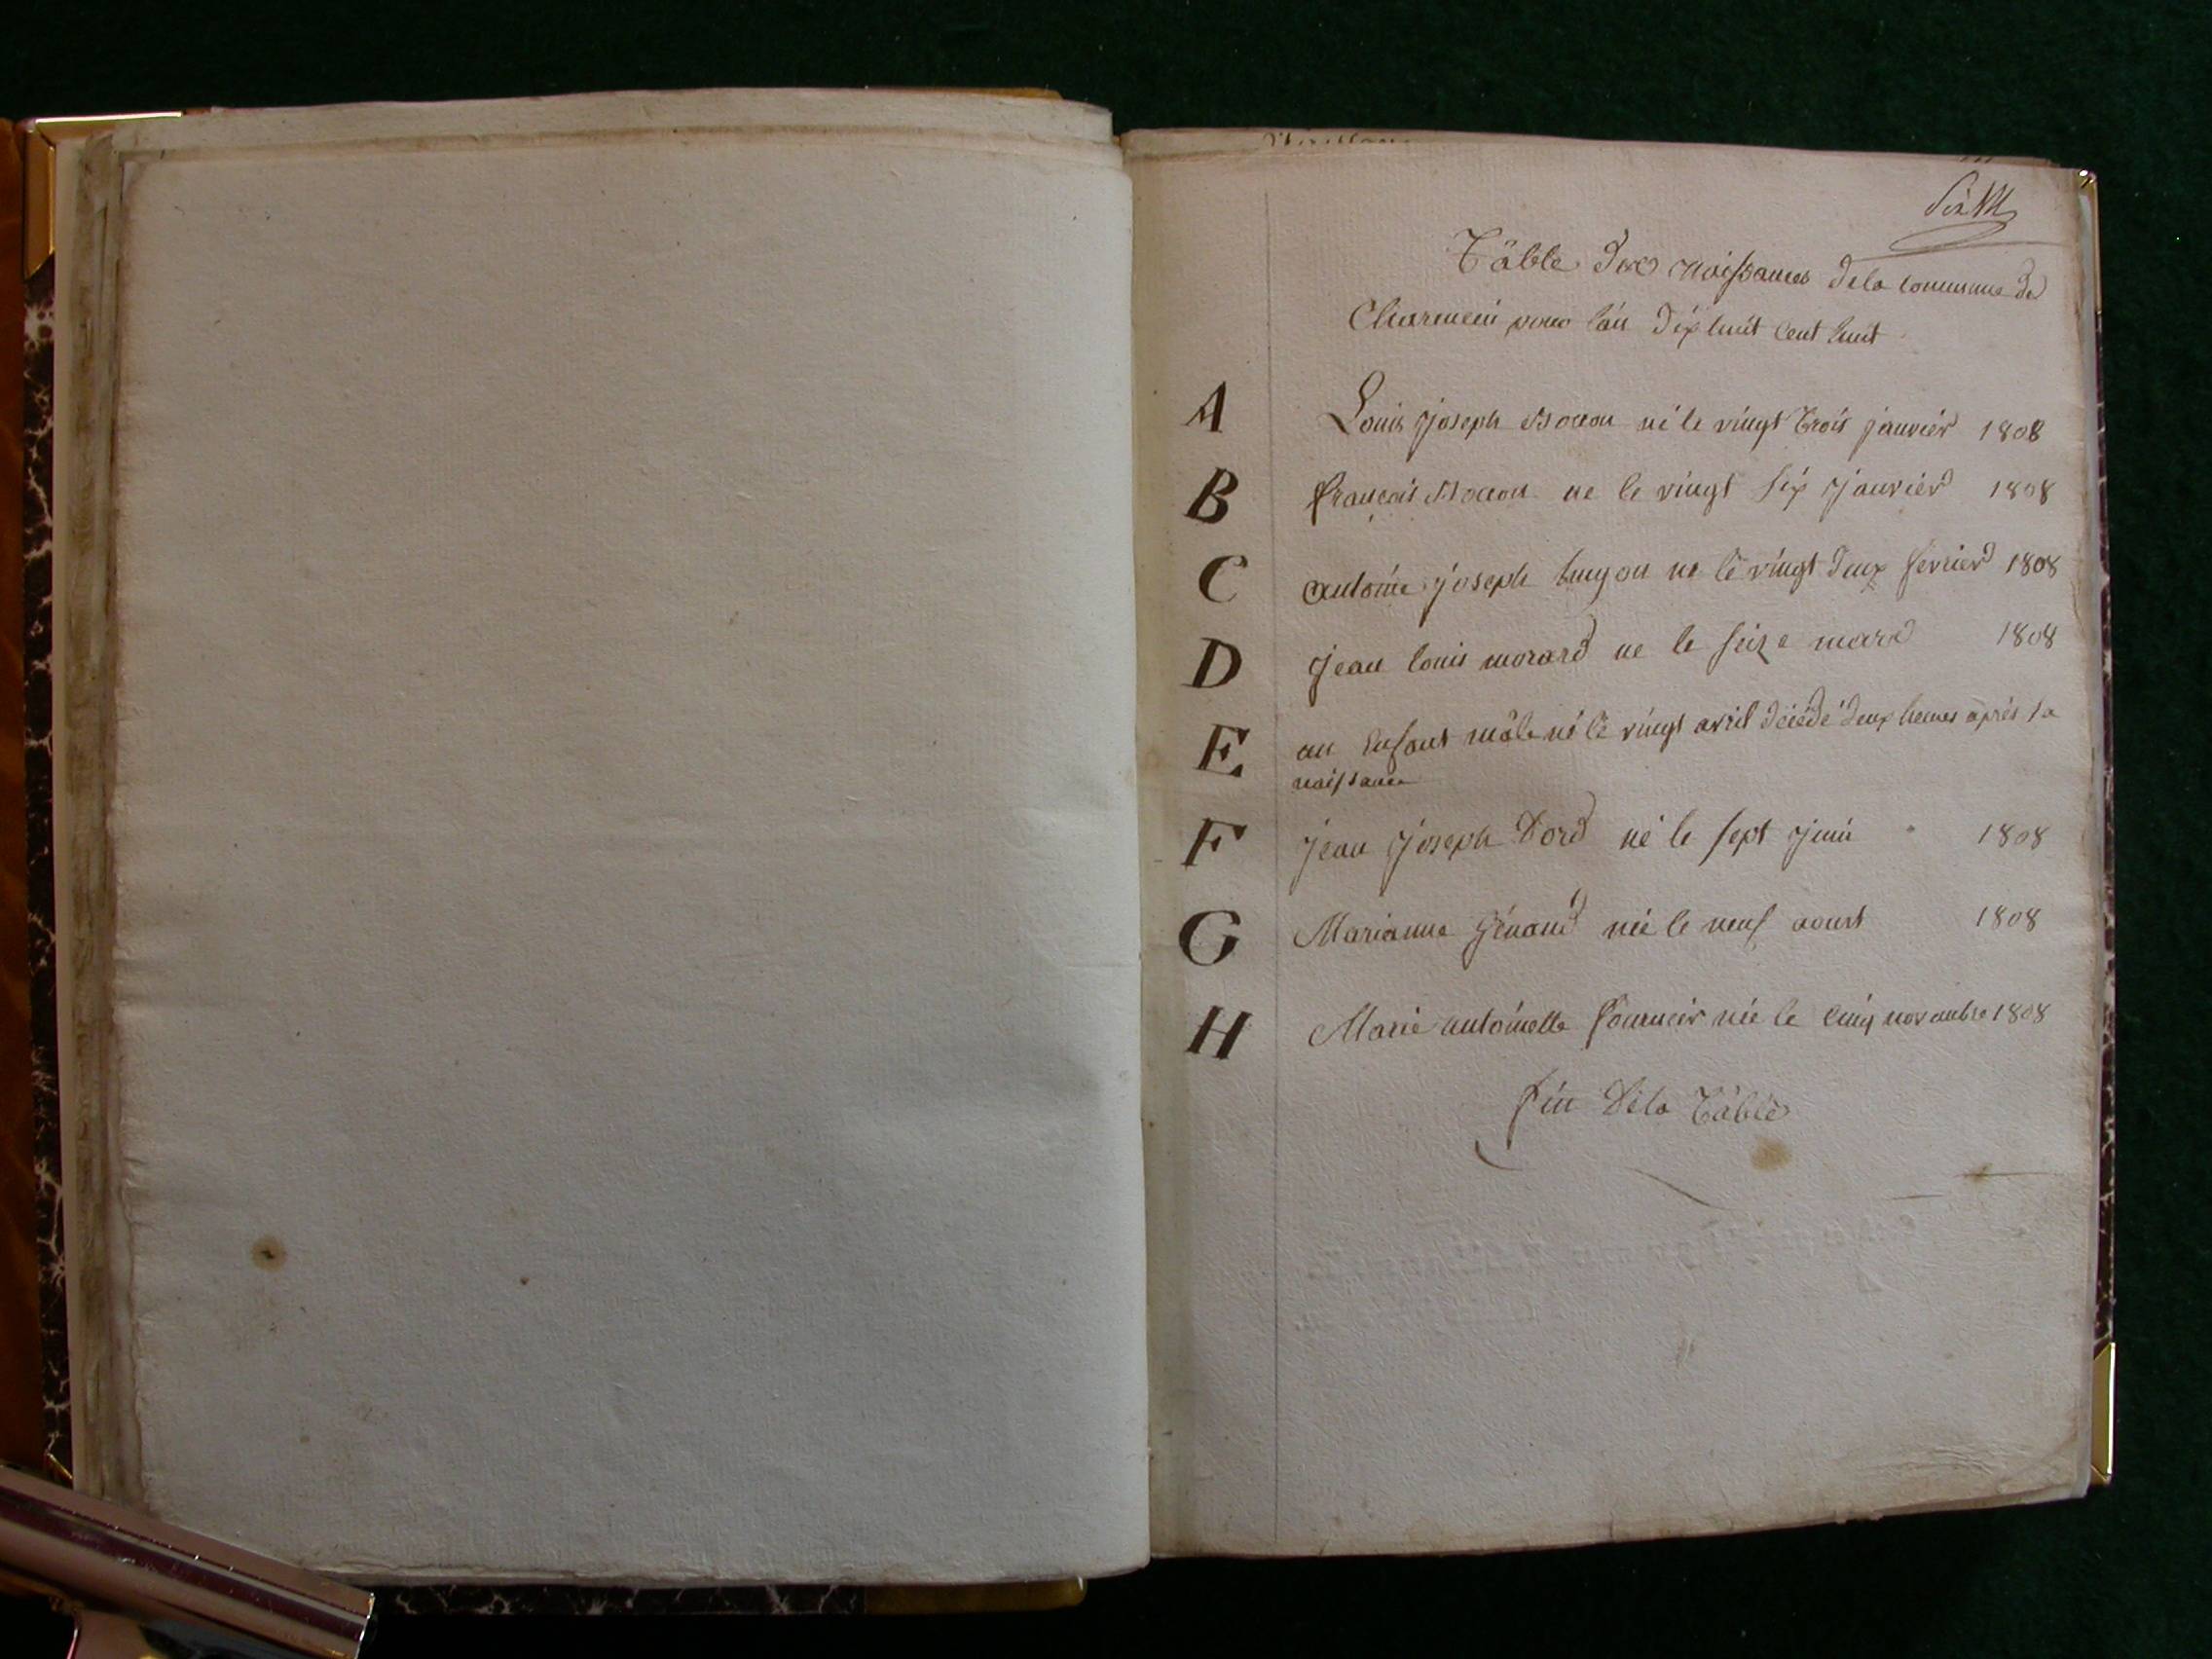 Six
Table des naissances de la commune de
Charmein pour l'an dix huit cent huit
A Louis joseph né le vingt trois janvier 1808
B françois ne le vingt six janvier 1808
C antoine joseph huyon ne le vingt deux fevrier 1808
D jean louis morard ne le seize mars 1808
E un enfant mâle né le vingt avril décédé deux heures après sa
naissance
F jean joseph Dord né le sept juin 1808
G Marianne Génand née le neuf aoust 1808
H Marie antoinette fournier née le cinq novembre 1808
fin de la Table